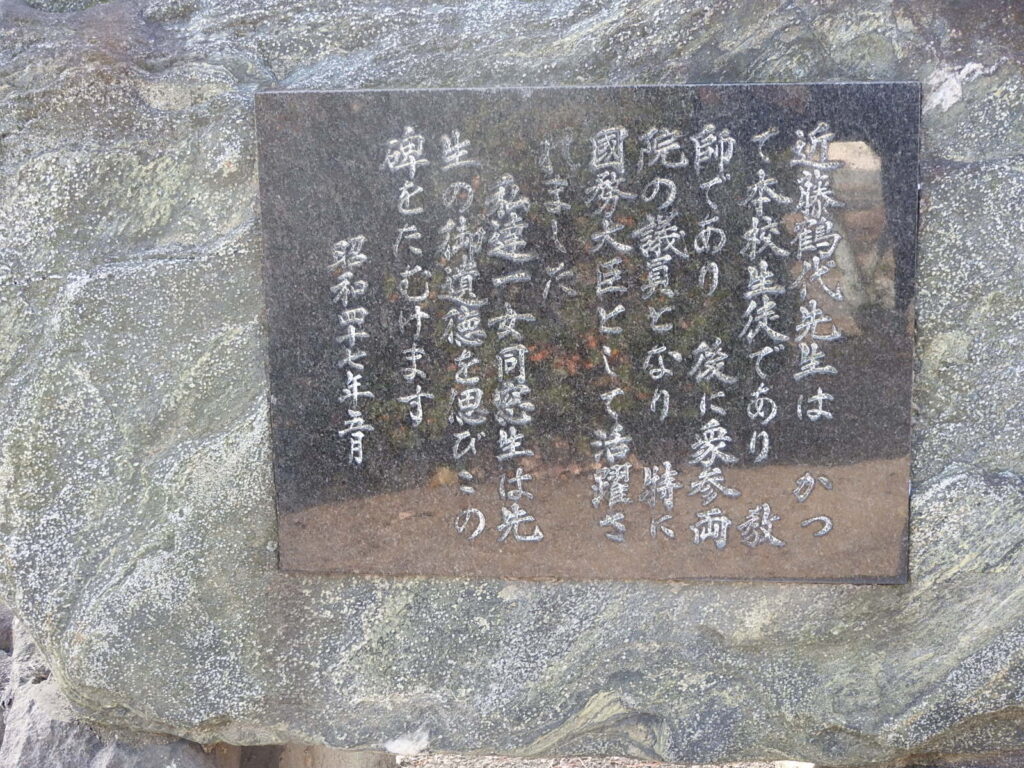 近藤鶴代先生は かつ
て本校生徒であり 教
師であり 後に衆参両
院の議員となり 特に
國務大臣として活躍さ
れました
私達一女同窓生は先
生の御遺徳を思びこの
碑をたむけます
昭和四十七年五月